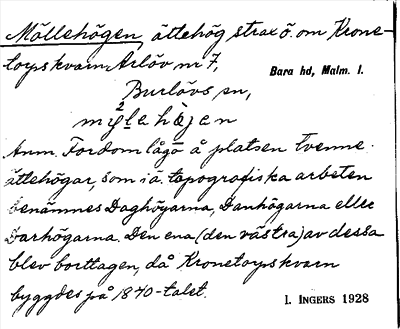 Möllehögen, ättehög strax ö. om Krone-
torpskvarn, Arlöv nr 7,
Bara hd, Malm. l.
Burlövs sn,
Anm. Fordom lågo å platsen tvenne
ättehögar, som i ä. topografiska arbeten
benämnes Daghögarna, Danhögarna eller
Darhögarna. Den ena (den västra) av dessa
blev borttagen, då Kronetorpskvarn
byggdes på 1840-talet.
I. INGERS 1928